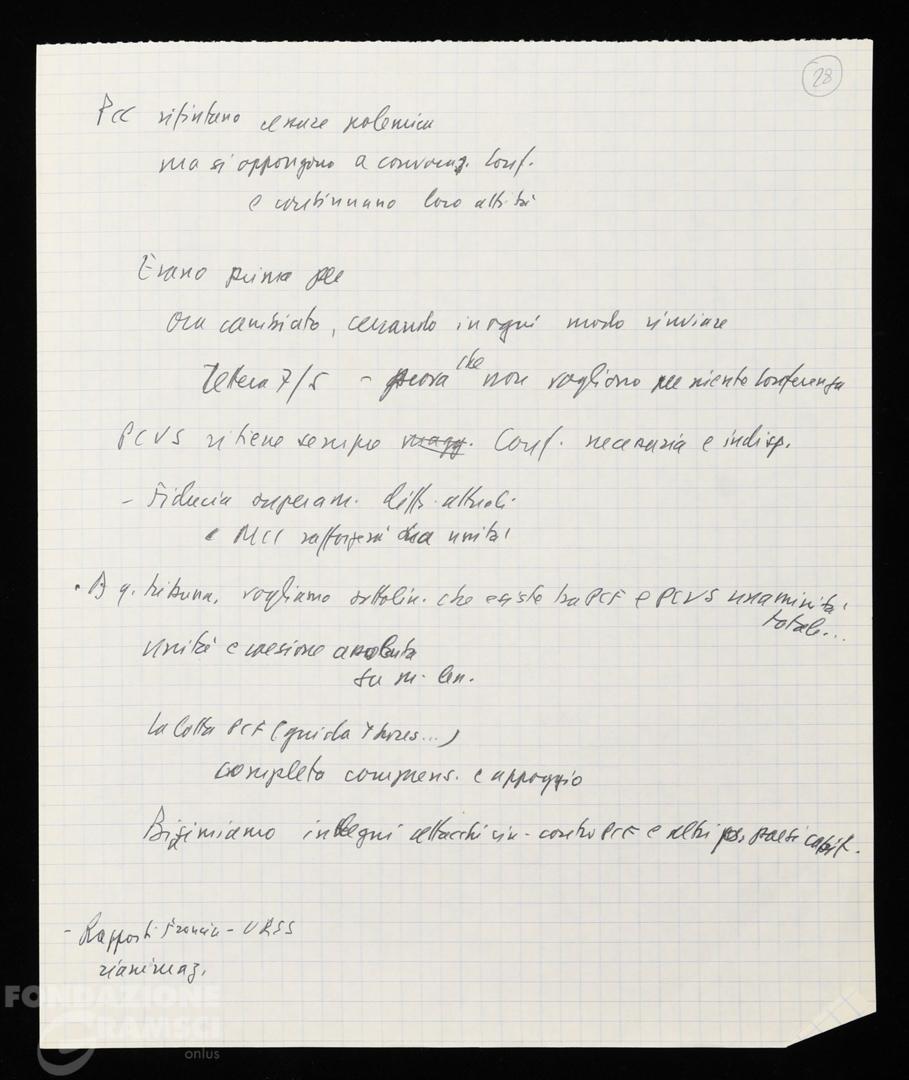 28
PCC rifiutano cessare polemica
ma si oppongono a convocaz. Conf.
e continuano loro attità
Erano prima per
Ora cambiato, cercando in ogni modo rinviare
Lettera 7/5 - prova che non vogliono per niente Conferenza
PCUS ritiene sempre magg. Conf. necessaria e indisp.
- Fiducia superam. diff. attuali
e MCI rafforzerà sua unità
• Da q. tribuna, vogliamo sottolin. che esiste tra PCF e PCUS unanimità
totale...
Unità e coesione assoluta
su m. len.
La lotta PCF (guida Thorez...)
completo comprens. e appoggio
indegni attacchi cin. contro PCF e altri pp. paesi capit.
- Rapporti Francia - URSS
rianimaz.
FONDAZIONE
GRAMSCI
onlus